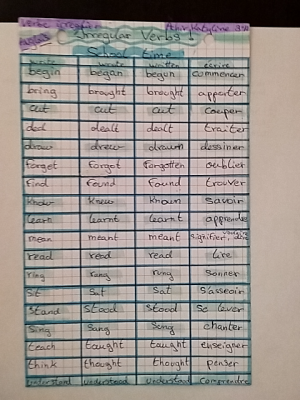 Irregular Verbs
School time
write wrote written écrire
begin began begun commencer
bring brought brought apporter
cut cut cut couper
deal dealt dealt traiter
draw drew drawn dessiner
forget forgot forgotten oublier
find found found trouver
know knew known savoir
learn learnt learnt apprendre
mean meant meant signifier vouloir dire
read read read lire
ring rang rung sonner
sit sat sat s'asseoir
stand stood stood se lever
sing sang sung chanter
teach taught taught enseigner
think thought thought penser
understand understood understood comprendre